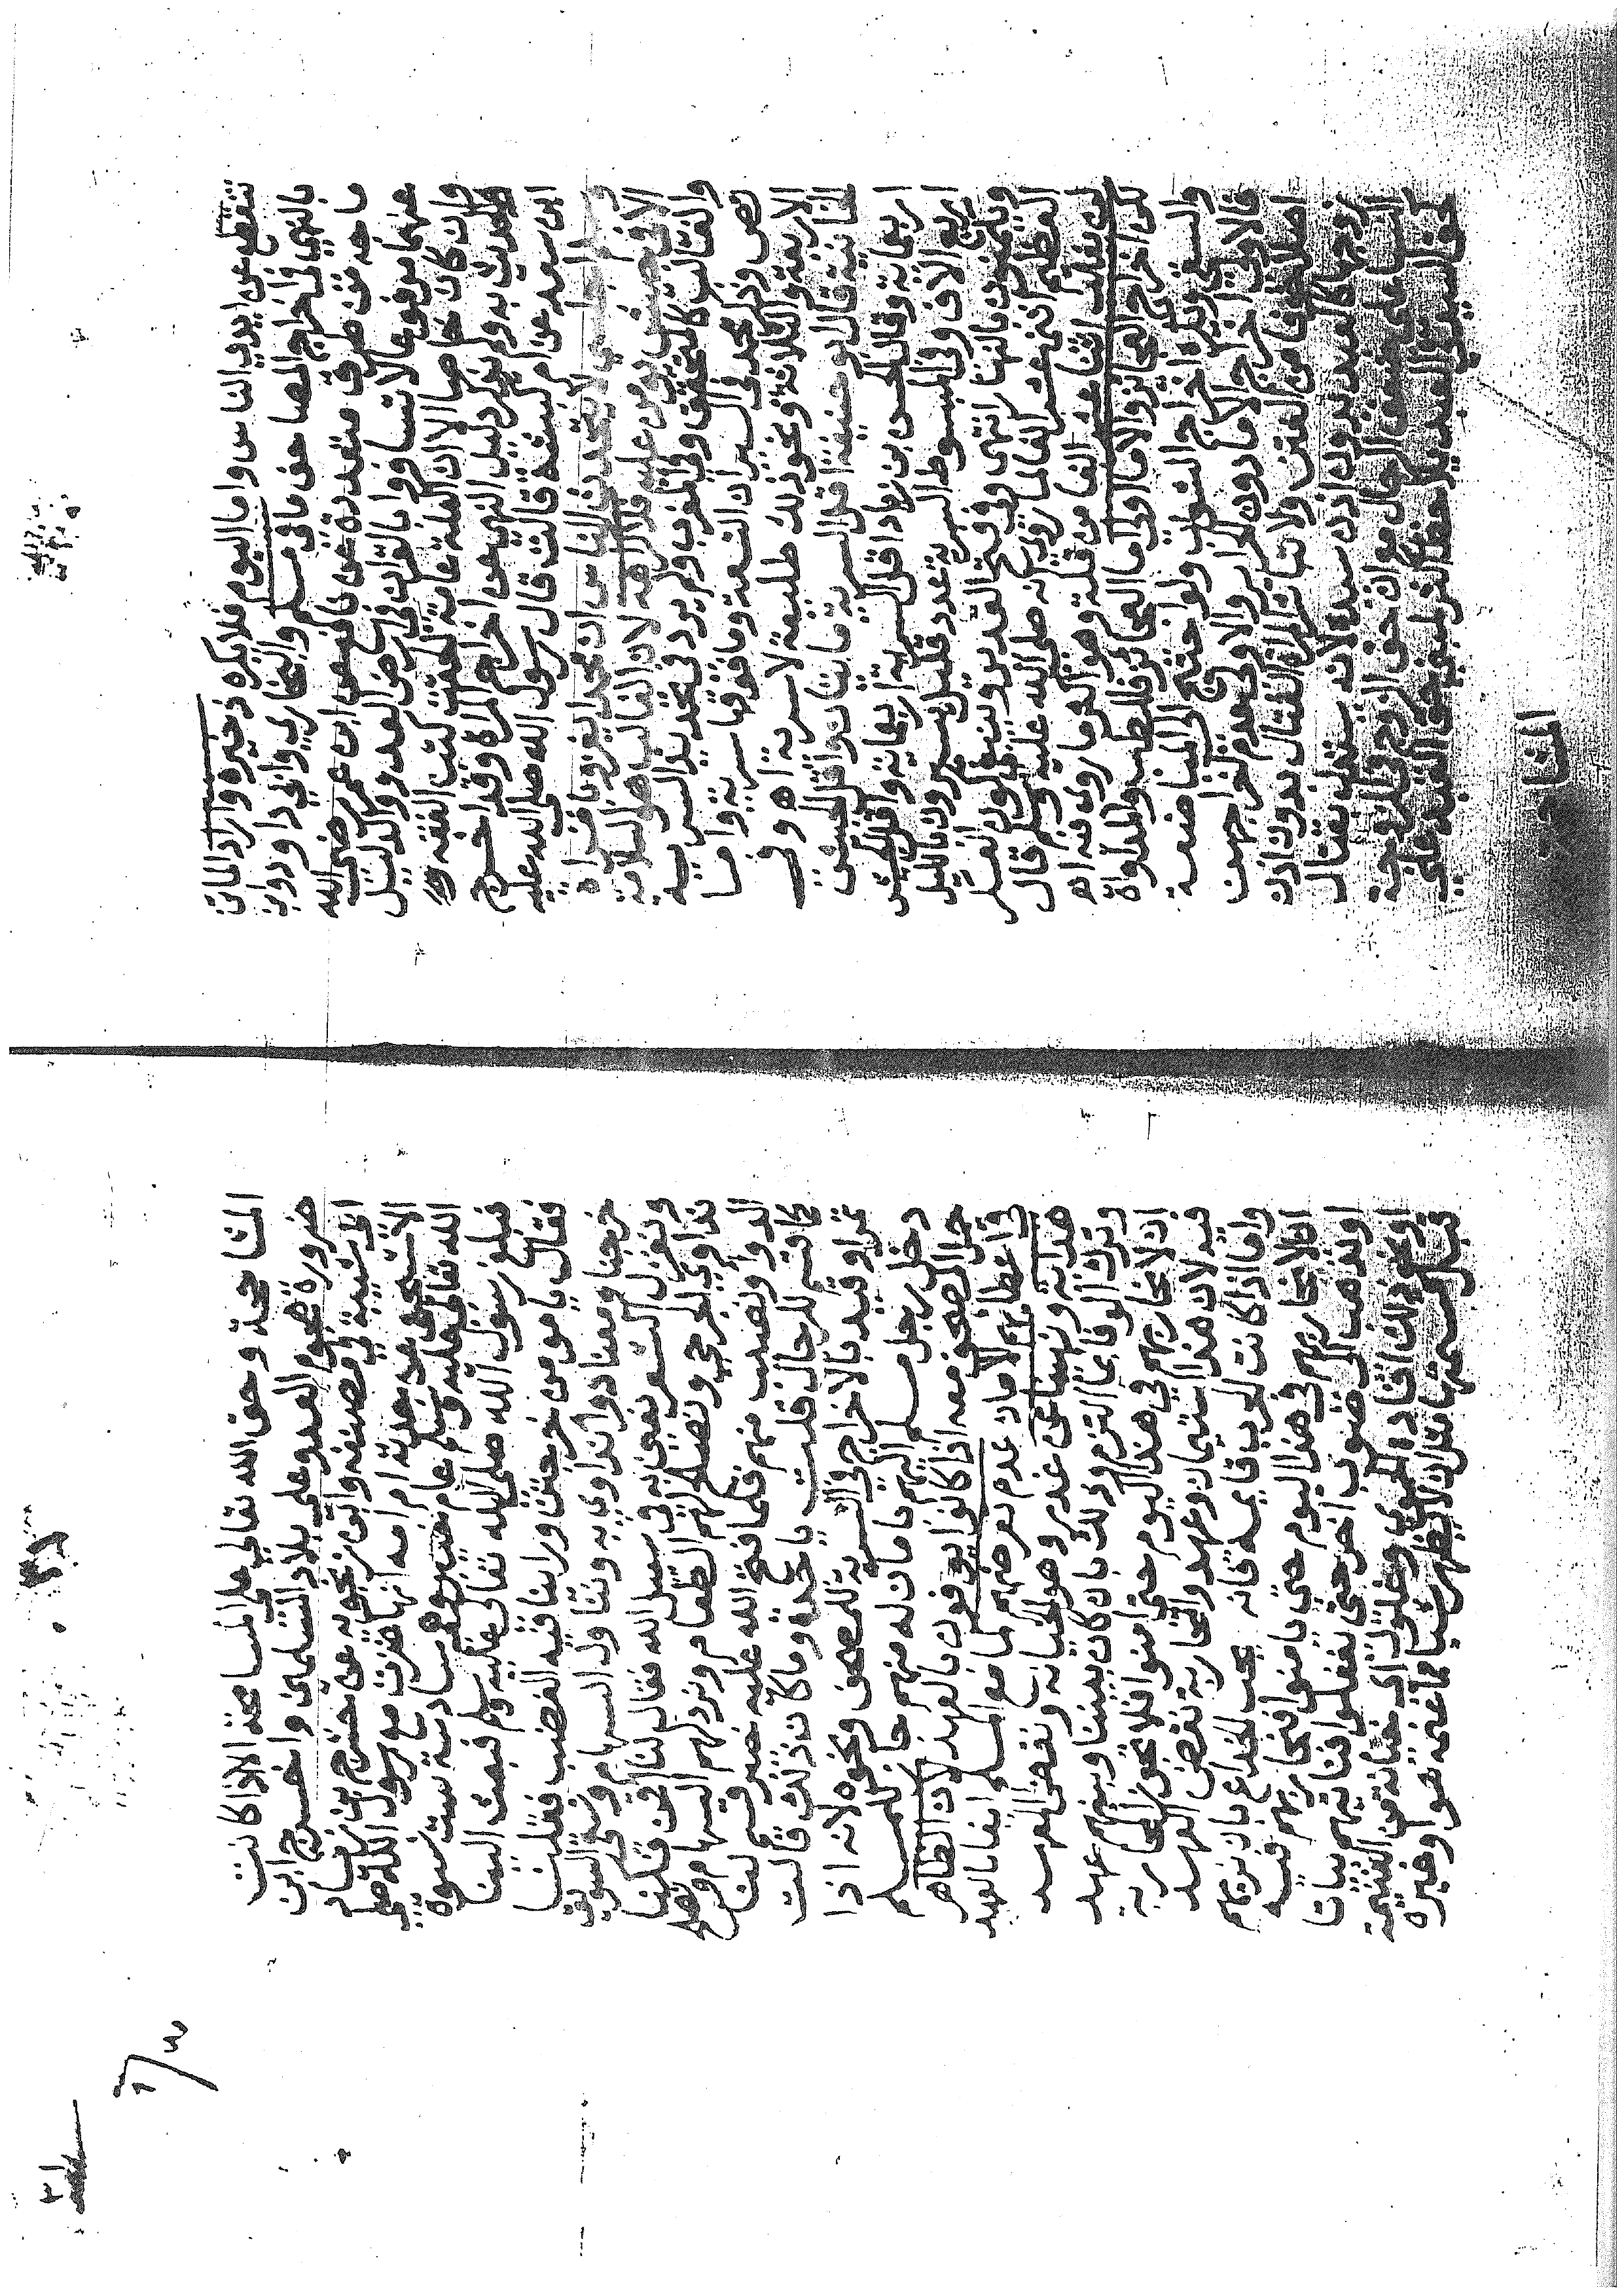 تنقطع عن ايدي الناس واما اليوم فلا يكره ذخيرة واراد الماتن
بالنهي في اخراج المصاحف ما في مسلم والبخاري وابي داود وابن
ماجه من طرق متعددة عن نافع عن ابن عمر رضي الله
عنهما مرفوعا لا تسافروا بالقران في ارض العدو والدليل
وان كان خاصا الا ان العلة عامة لحقت كتب الفقه و
الحديث به ولم يذكر دليل النهي عن اخراج المراة وقد اخرج
ابن سعد عن ام كبشة قالت قال رسول الله صلى الله عليه
اجلسي لا يتحدث الناس ان محمدا يغزو بامراة
الا في جيش يومن عليه فلا كراهة لان الغالب هو السلامة
والغالب كالمتحقق وفي المغرب ولم يرد في تحديد السرية
نص وذكر محمد في السير ان التسعة وما فوقها سرية واما
الاربعة والثلاثة ونحو ذلك طليعة لا سرية اه وفي
الخانية قال ابو حنيفة اقل السرية مائتان واقل الجيش
اربعماية وقال الحسن بن زياد اقل السرية اربعماية واقل الجيش
اربع الاف وفي المبسوط السرية عدد قليل يسيرون بالليل
ويكمنون بالنهار انتهى وفي فتح القدير وينبغي كون العسكر
العظيم اثنى عشر الفا لما روي انه صلى الله عليه وسلم قال
لن تغلب اثنا عشر الفا من قلة وهو اكثر ما روي فيه اه
لكن اخراج العجائز والاما اولى اما العجائز فللطب والمداواة
والسقي ويكره اخراج الشواب ولو احتيج الى المباضعة
فالاولى اخراج الاما دون الحراير والاولى عدم اخراجهن
اصلا خوفا من الفتن ولا تباشر المراة القتال بدون اذن
زوجها كالعبد بدون اذن سيده لانه يستدل بقتال
النسا على ضعف الرجال حق الزوج في الزوجة
كحق السيد في العبد
المشاحة
المشاحة وحق الله تعالى على المسامحة الا اذا كانت
ضرورة هجوم العدو على بلاد المسلمين واخرج ابن
ابي شيبة في مصنفه وابن زنجويه عن حشرج بن زياد
الاشجعي عن جدته ام امه انها غزت مع رسول الله صلى
الله تعالى عليه وسلم عام خيبر وهي سادسة ست نسوة
فبلغ رسول الله صلى الله تعالى عليه وسلم فبعث الينا
فقال يا من خرجتن وراينا فيه الغضب فقلنا
خرجنا ومعنا دوا نداوي به ونناول السهام ونسقي السويق
ونغزل الشعر نعين به في سبيل الله فقال لنا اقمن فكنا
نداوي الجرحى ونصلح لهم الطعام ونرد لهم السهام ونصلح
الدوا ونصيب منهم فلما فتح الله عليه خيبر قسم لنا
كما قسم للرجال فقلت يا جدة وما كان ذلك قالت
تمرا وقيد بالاخراج في السرية للمصحف ونحوه لانه اذا
دخل رجل مسلم اليهم بامان له منهم جاز للمسلم
حمل المصحف معه اذا كانوا يوفون بالعهد لان الظاهر
عدم تعرضهم
ونهينا عن غدر وهو الخيانة ونقض العهد
وترك الوفا بما التزم وذلك بان كان بيننا وبينهم عهد
ان لا نحاربهم في هذا اليوم حتى امنوا فلا يجوز المحاربة
فيه لان هذا استيمان وعهد والمحاربة نقض العهد
واما اذا كانت الحرب قايمة فانه يجب الخداع بان نريهم
انا لا نحاربهم في هذا اليوم حتى يامنوا فنحاربهم فيه
او نذهب الى صوب اخر حتى يغفلوا فناتيهم بياتا
او نحو ذلك وغلول اي خيانة من الغنيمة
قبل قسمتها